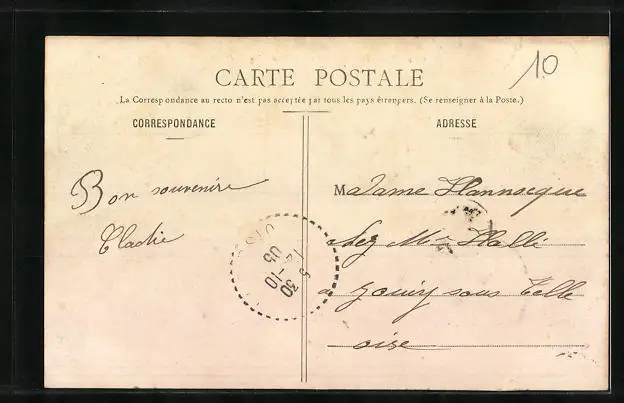 10
CARTE POSTALE
La Correspondance au recto n'est pas acceptée par tous les pays étrangers. (Se renseigner à la Poste.)
CORRESPONDANCE
ADRESSE
Bon souvenire
Madame Hannocque
chez Mr Hallé
de sous Telle
oise
30 -10
05